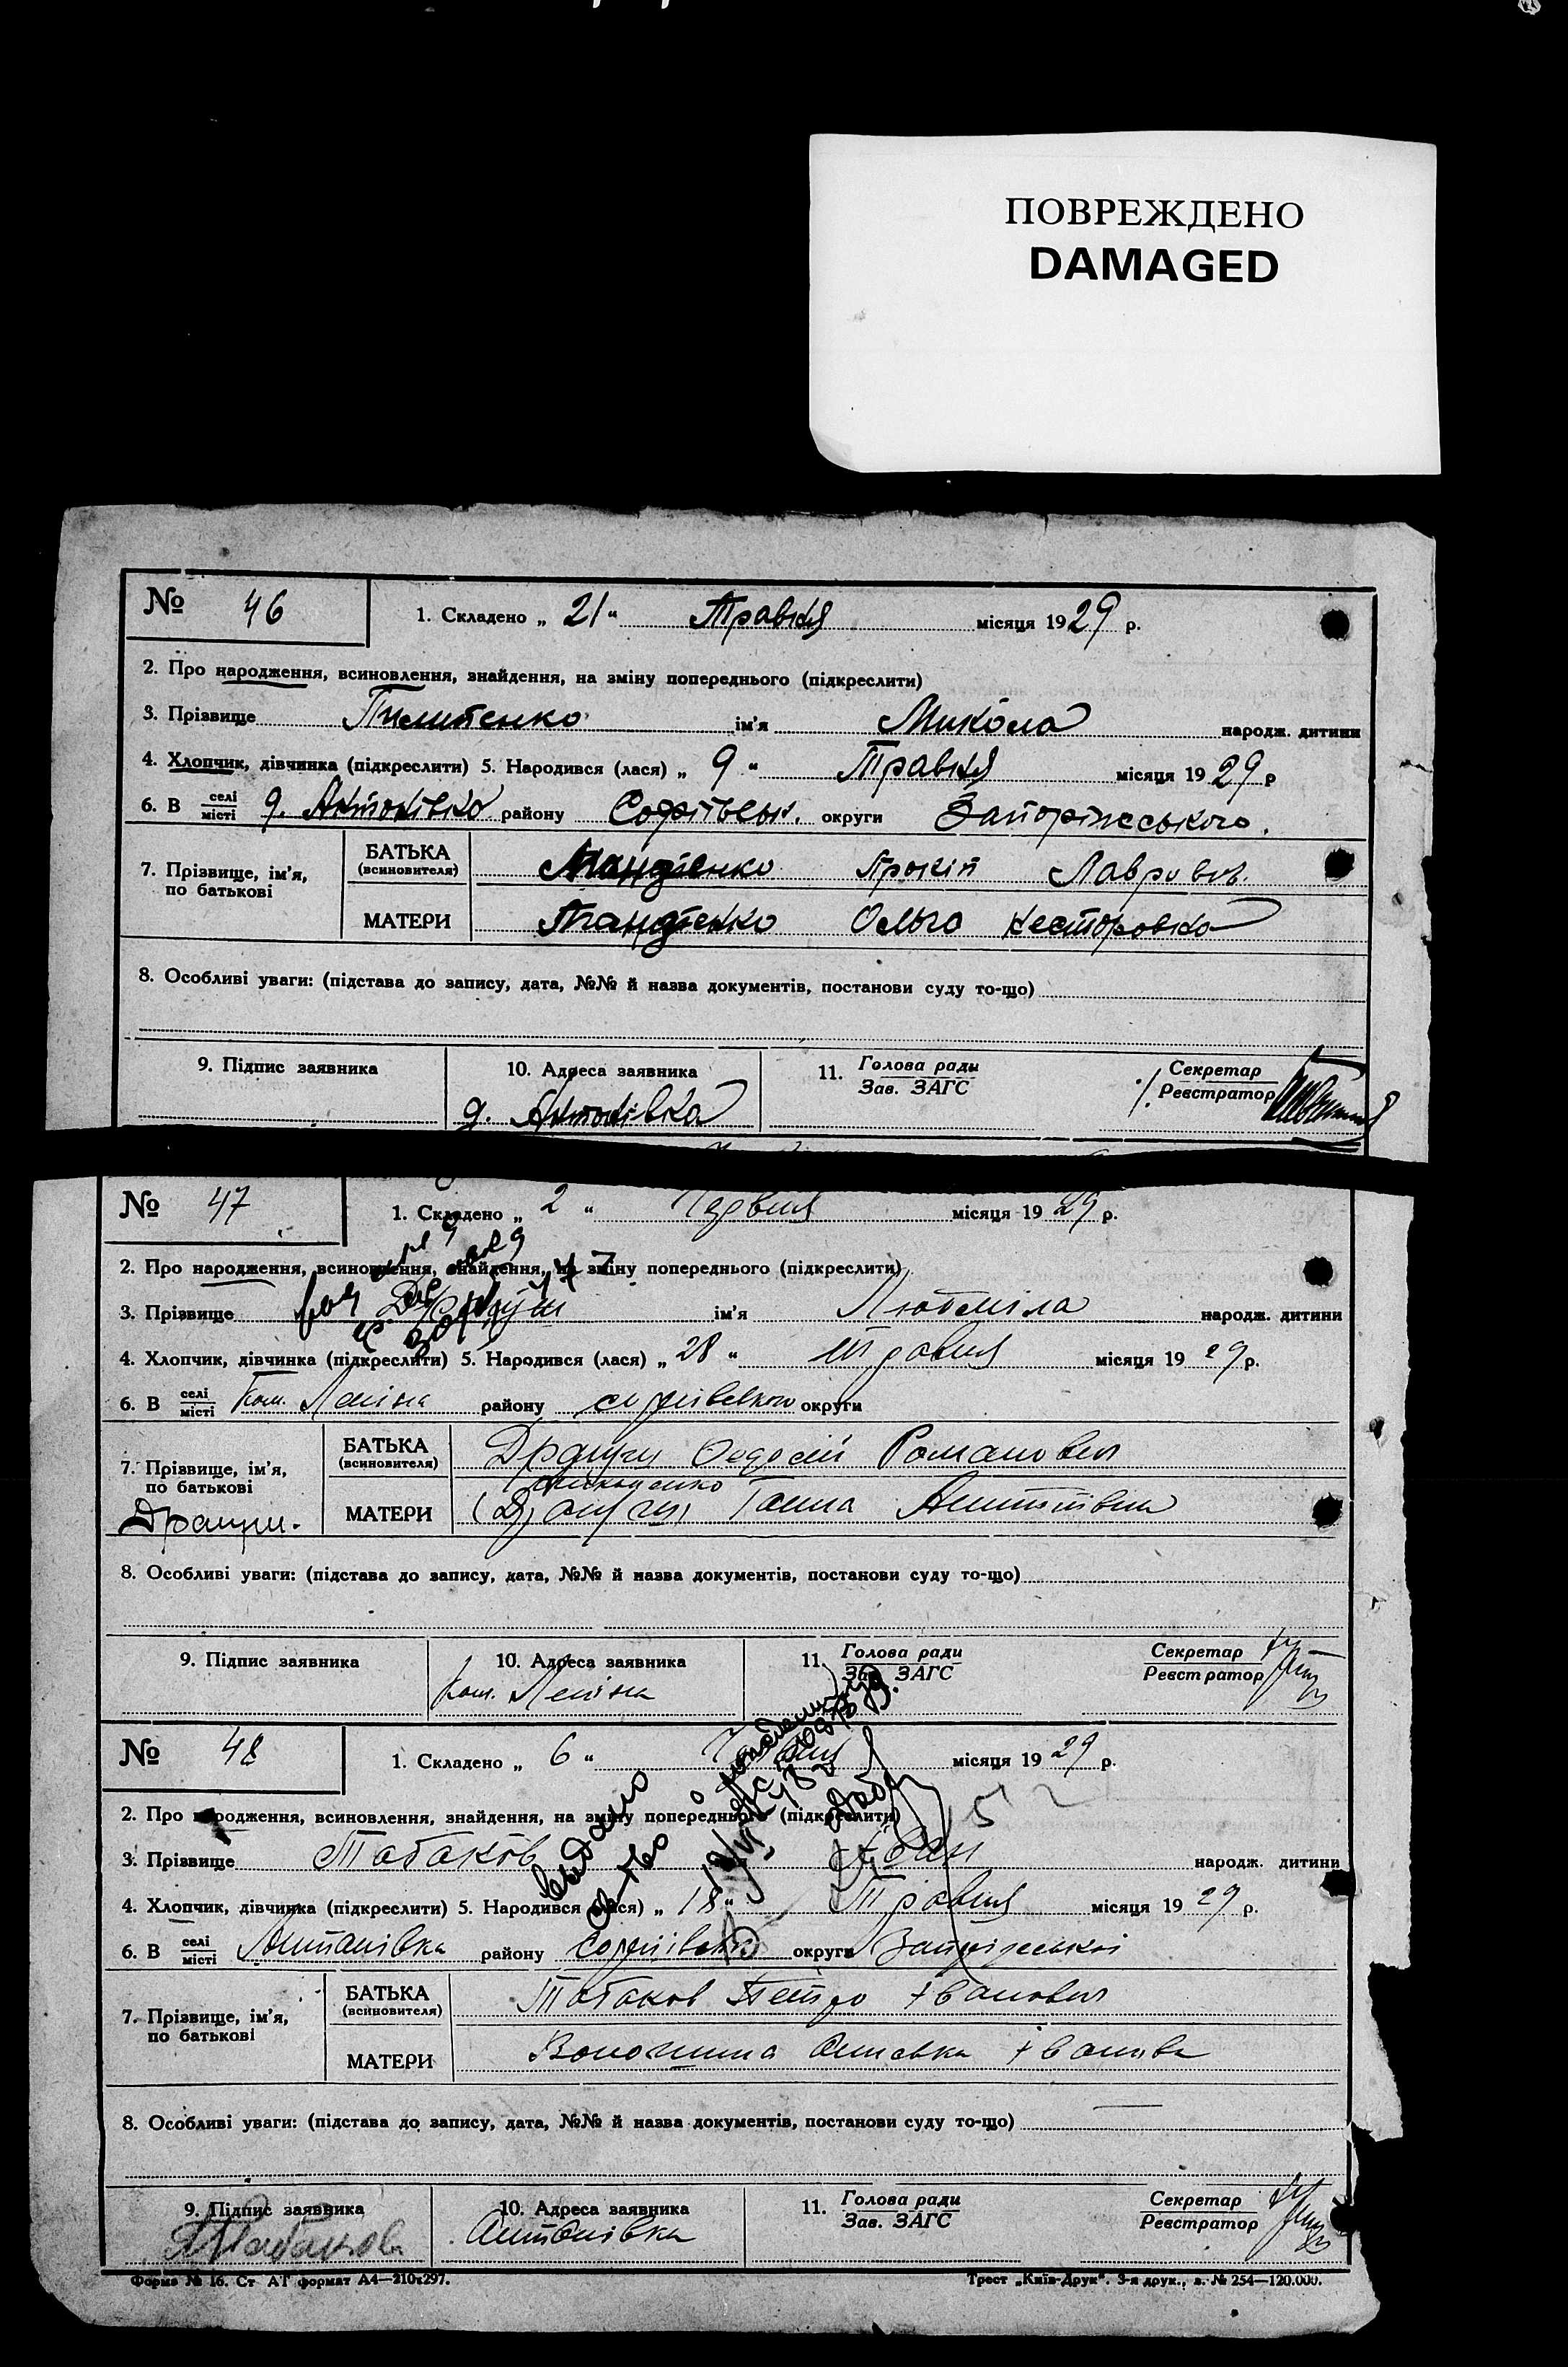 ПОВРЕЖДЕНО
DAMAGED
№ 46
1. Складено „ 21 “ Травня місяця 1929 р.
2. Про народження, всиновлення, знайдення, на зміну попереднього (підкреслити)
3. Прізвище Пилипенко ім'я Микола народж. дитини
4. Хлопчик, дівчинка (підкреслити) 5. Народився (лася) „ 9 “ Травня місяця 1929 р
6. В селі місті д. Антонівка району Софіївськ. округи Запоріжського.
7. Прізвище, ім'я, по батькові
БАТЬКА (всиновителя) Прокіп Лавров.
МАТЕРИ Ольга Несторовна
8. Особливі уваги: (підстава до запису, дата, №№ й назва документів, постанови суду то-що)
9. Підпис заявника
10. Адреса заявника
д. Антонівка
11. Голова ради Зав. ЗАГС
Секретар Реєстратор
№ 47
1. Складено „ 2 “ Червня місяця 1929 р.
2. Про народження, всиновлення, знайдення, на зміну попереднього (підкреслити)
3. Прізвище ім'я Людміла народж. дитини
4. Хлопчик, дівчинка (підкреслити) 5. Народився (лася) „ 28 “ травня місяця 1929 р.
6. В селі місті Ком. Леніна району софіївського округи
7. Прізвище, ім'я, по батькові
БАТЬКА (всиновителя) Федосій Романович
МАТЕРИ Ганна Антонівна
8. Особливі уваги: (підстава до запису, дата, №№ й назва документів, постанови суду то-що)
9. Підпис заявника
10. Адреса заявника
Ком. Леніна
11. Голова ради Зав. ЗАГС
Секретар Реєстратор
№ 48
1. Складено „ 6 “ Червня місяця 1929 р.
2. Про народження, всиновлення, знайдення, на зміну попереднього (підкреслити)
52
3. Прізвище Табаков Іван народж. дитини
4. Хлопчик, дівчинка (підкреслити) 5. Народився (лася) „ 18 “ Травня місяця 1929 р.
6. В селі місті Антонівка району Софіївськ округи Запоріжської
выдано
св-тво о рождении
7. Прізвище, ім'я, по батькові
БАТЬКА (всиновителя) Табаков Петро Іванович
МАТЕРИ Іванівна
8. Особливі уваги: (підстава до запису, дата, №№ й назва документів, постанови суду то-що)
9. Підпис заявника
Табакова
10. Адреса заявника
Антонівка
11. Голова ради Зав. ЗАГС
Секретар Реєстратор
Форма № 16. Ст АГ формат А4—210х297.
Трест „Київ-Друк“. 3-я друк., з. № 254—120.000.